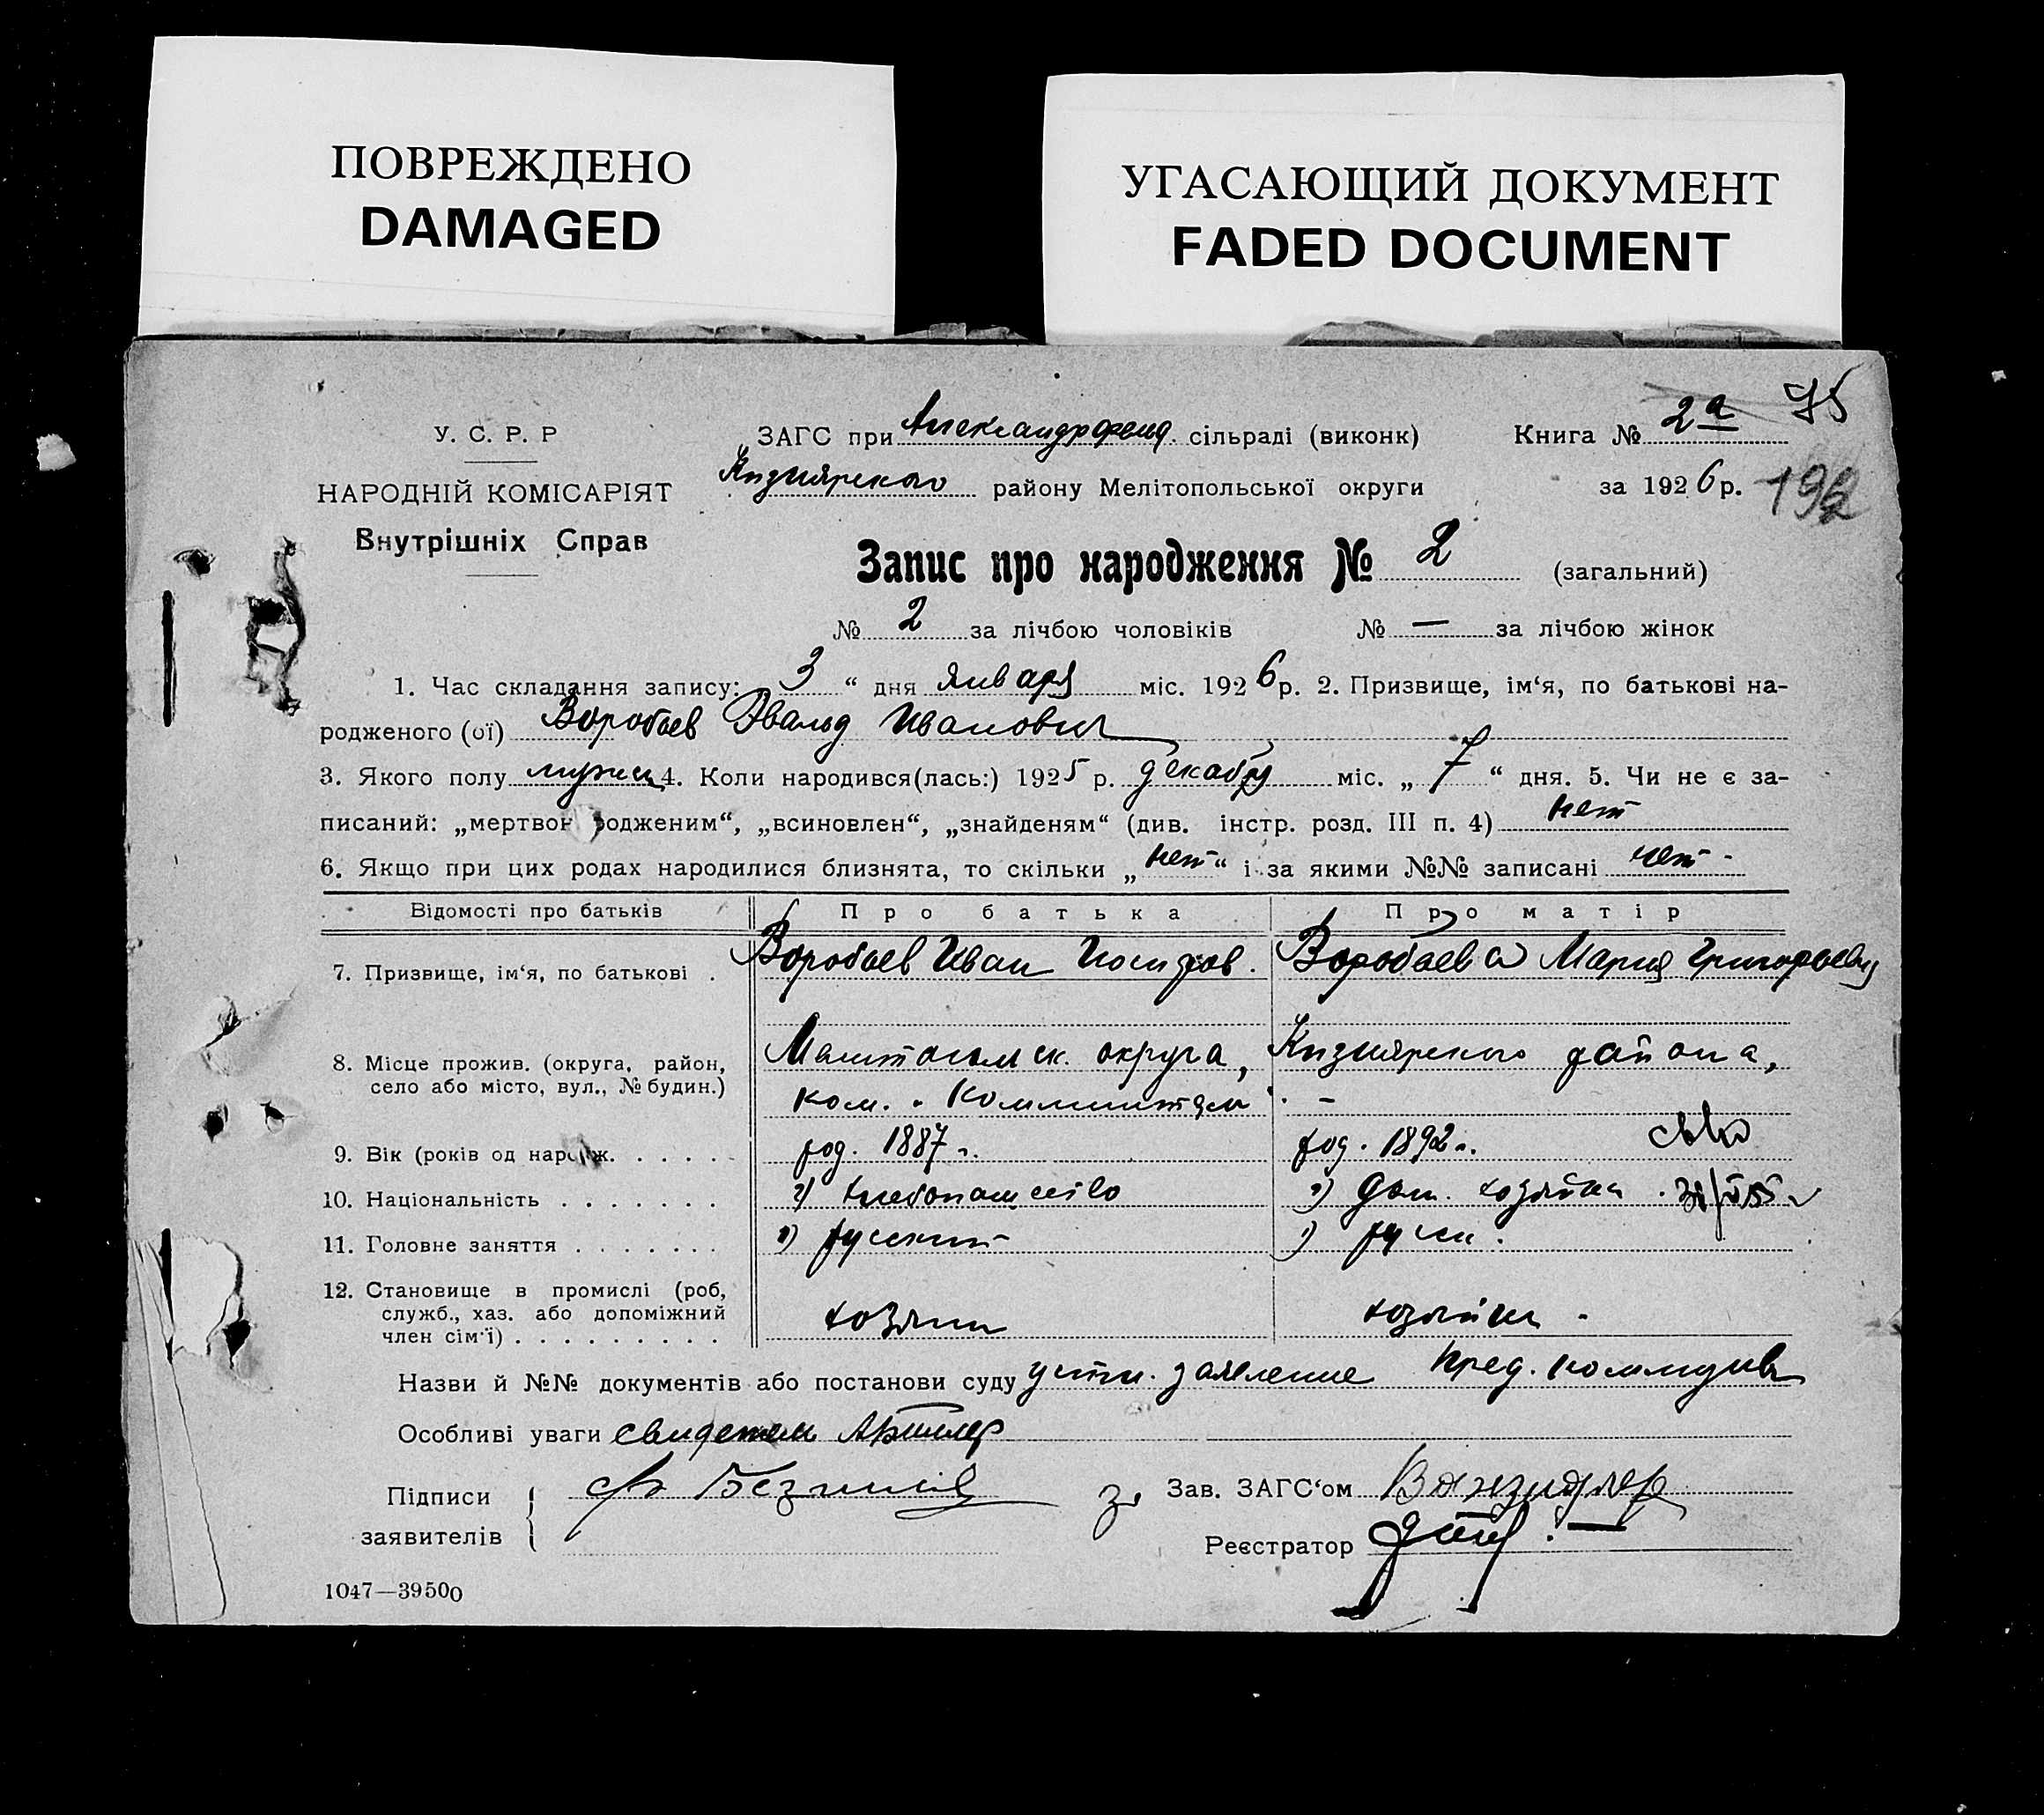 ПОВРЕЖДЕНО
DAMAGED
УГАСАЮЩИЙ ДОКУМЕНТ
FADED DOCUMENT
75
У. С. Р. Р
НАРОДНІЙ КОМІСАРІЯТ
Внутрішніх Справ
ЗАГС при Александрфельд. сільраді (виконк)
Кизиярского району Мелітопольської округи
Книга № 2а
за 1926 р.
192
Запис про народження № 2 (загальний)
№ 2 за лічбою чоловіків № — за лічбою жінок
1. Час складання запису: 3 “ дня января міс. 1926 р. 2. Призвище, ім‘я, по батькові на-
родженого (ої) Воробьев Эвальд Иванович
3. Якого полу мужск 4. Коли народився(лась:) 1925 р. декабр міс. „ 7 “ дня. 5. Чи не є за-
писаний: „мертвон родженим“, „всиновлен“, „знайденям“ (див. інстр. розд. III п. 4) нет
6. Якщо при цих родах народилися близнята, то скільки „ нет “ і за якими №№ записані нет -
Відомості про батьків Про батька Про матір
7. Призвище, ім‘я, по батькові . Воробьев Иван Иосифов. Воробьева Мария Григорьевн
8. Місце прожив. (округа, район, село або місто, вул., № будин.)
округа, Кизиярского района,
ком.
9. Вік (років од народж. . . . . . род. 1887 г. род. 1892 г.
10. Національність . . . . . . . 2) хлебопашество 2) дом. хозяйка .
11. Головне заняття . . . . . . . 1) русский 1) русск.
12. Становище в промислі (роб, служб., хаз. або допоміжний член сім‘ї) . . . . . . . . . хозяин хозяйка -
Назви й №№ документів або постанови суду устн. заявление Пред. коммуны
Особливі уваги свидетель
Підписи
заявителів
Зав. ЗАГС‘ом
Реєстратор
1047—39500